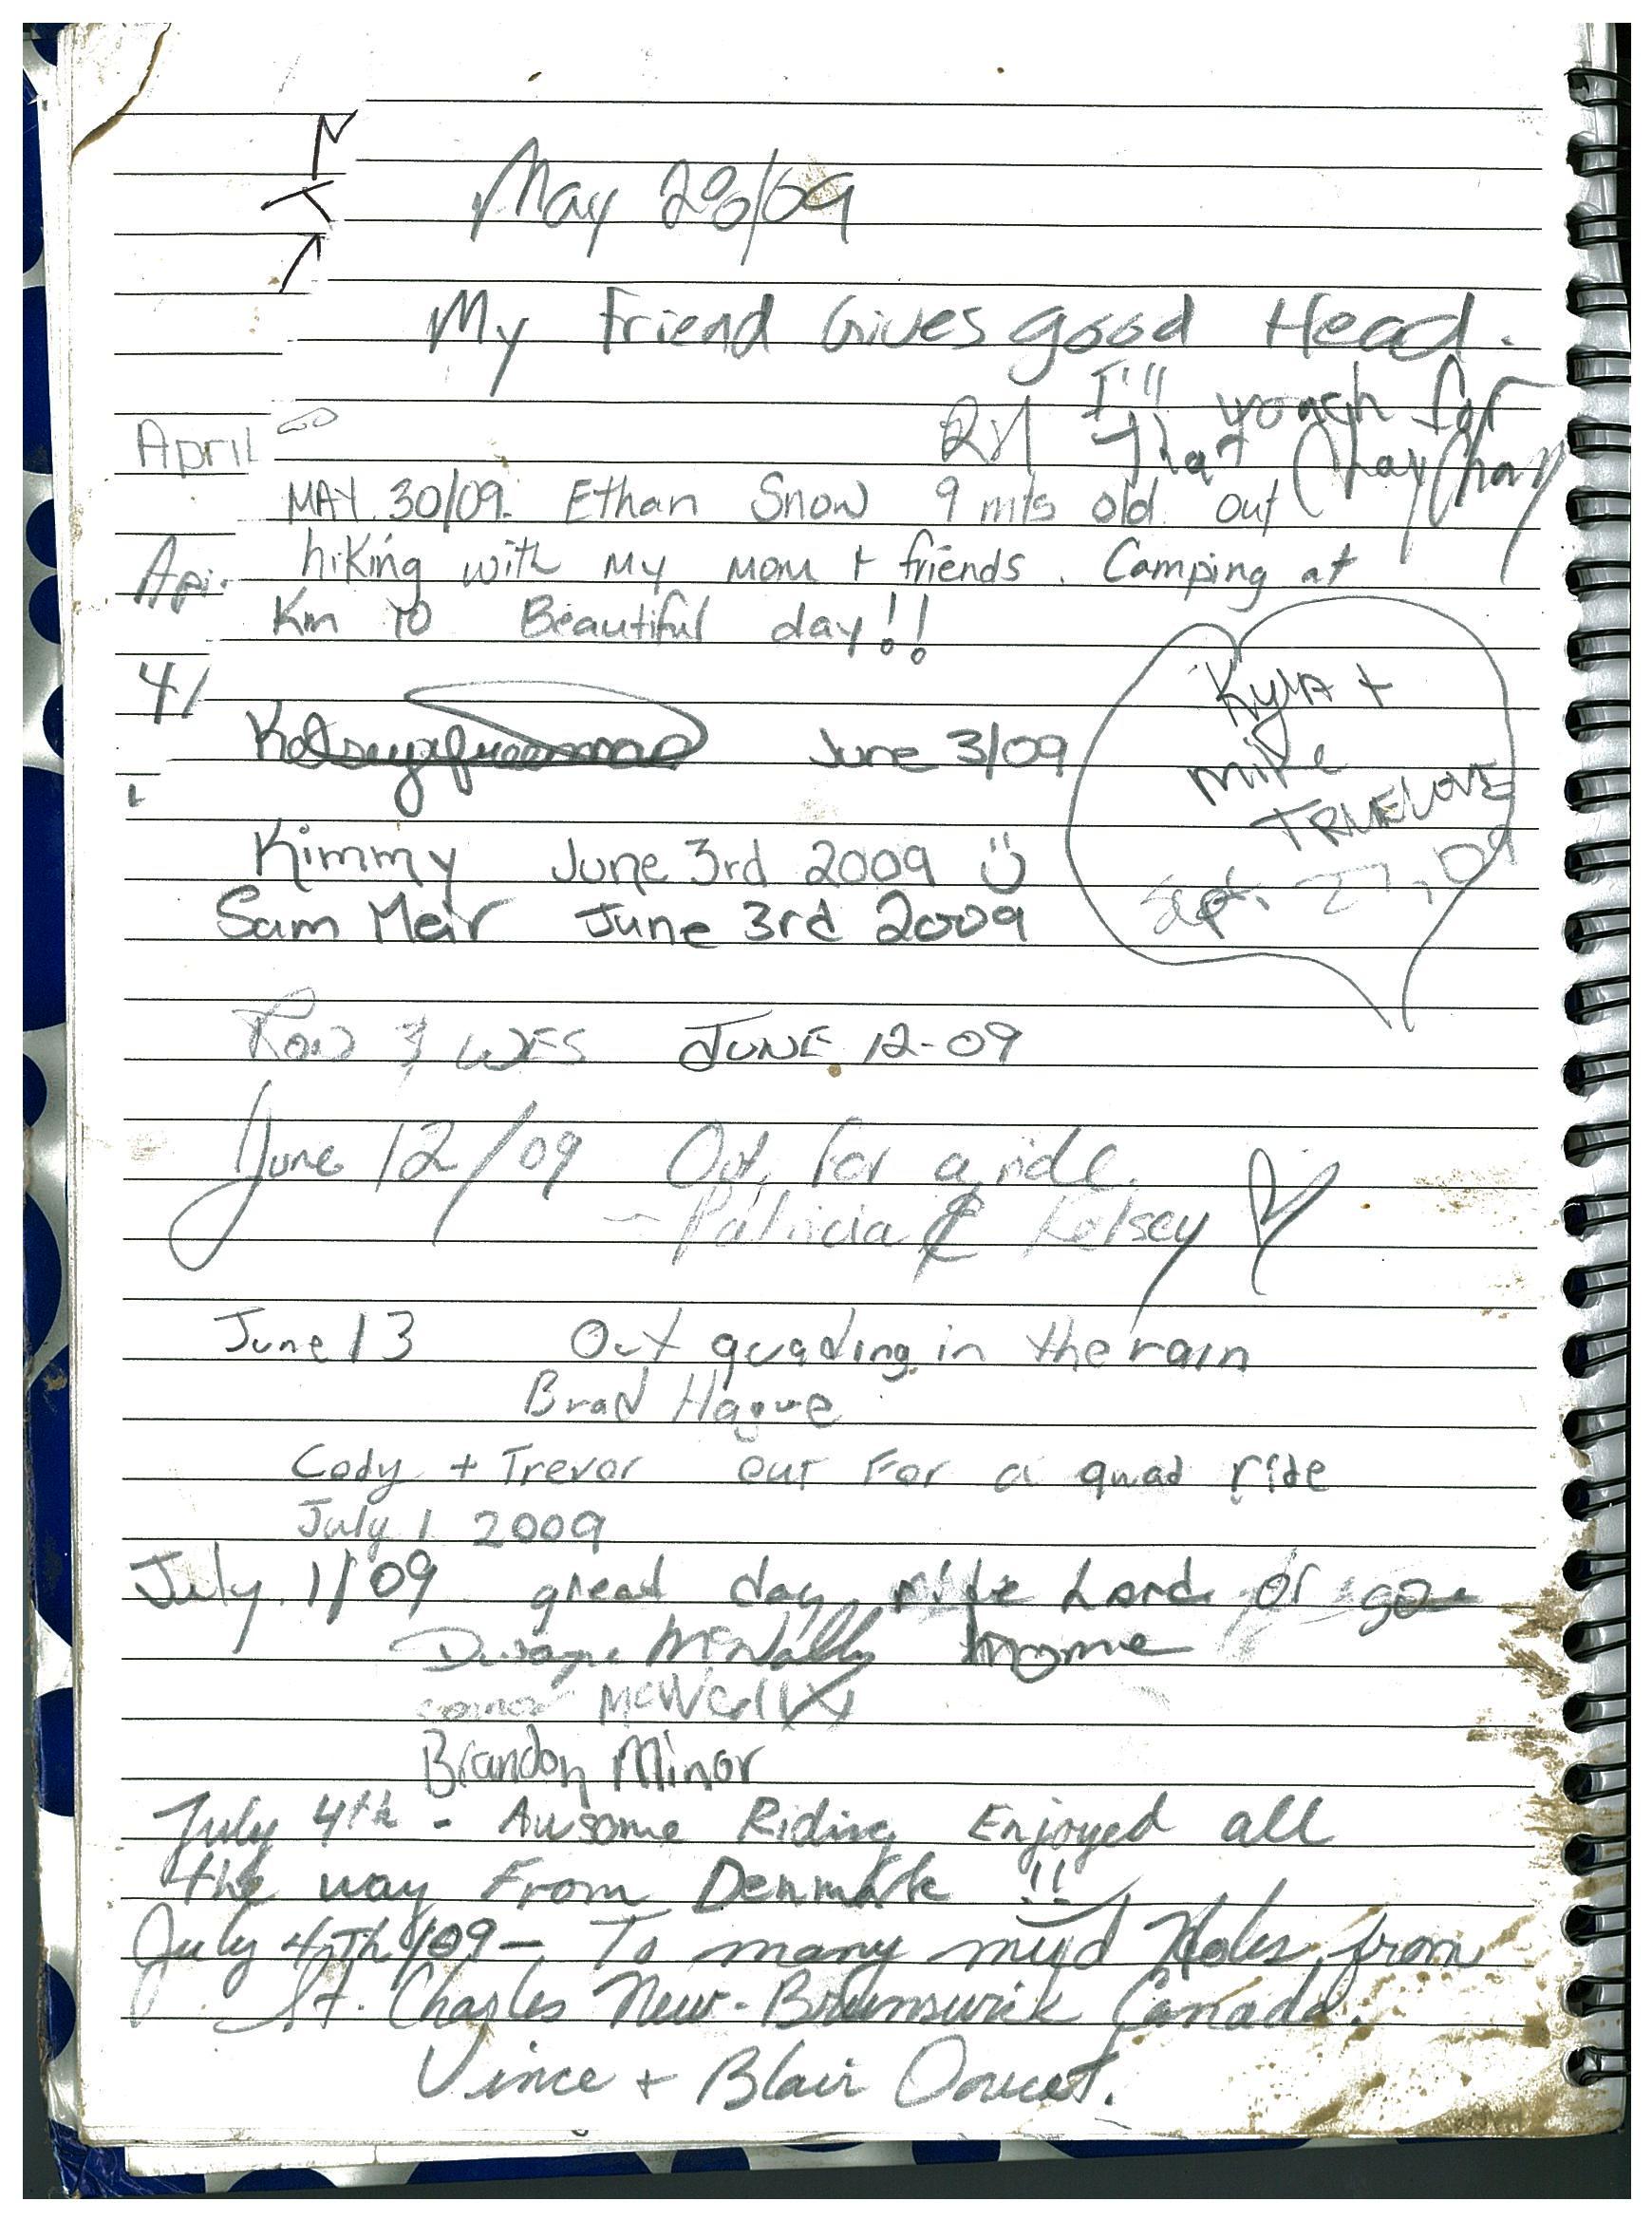 May 28/09
My friend Gives good Head.
I'll vouch for
that Chay Chay
April
MAY 30/09. Ethan Snow 9 mts old out
hiking with my mom + friends. Camping at
Km 10 Beautiful day!!
41
June 3/09
Kyra +
mike
TRUELOVE
Sept. 27, 09
Kimmy June 3rd 2009
Sam Meir June 3rd 2009
& WES JUNE 12-09
June 12/09 Out for a ride.
- Patricia & Kelsey
June 13 Out quading in the rain
Brad Hague
Cody + Trevor out For a quad ride
July 1 2009
July 1/09 great day
Dwayne McNally home
Brandon Minor
July 4th - Awsome Riding Enjoyed all
the way From Denmark !!
July 4th/09 - To many mud Holes from
St. Charles New-Brunswick Canada.
Vince + Blair Doucet.